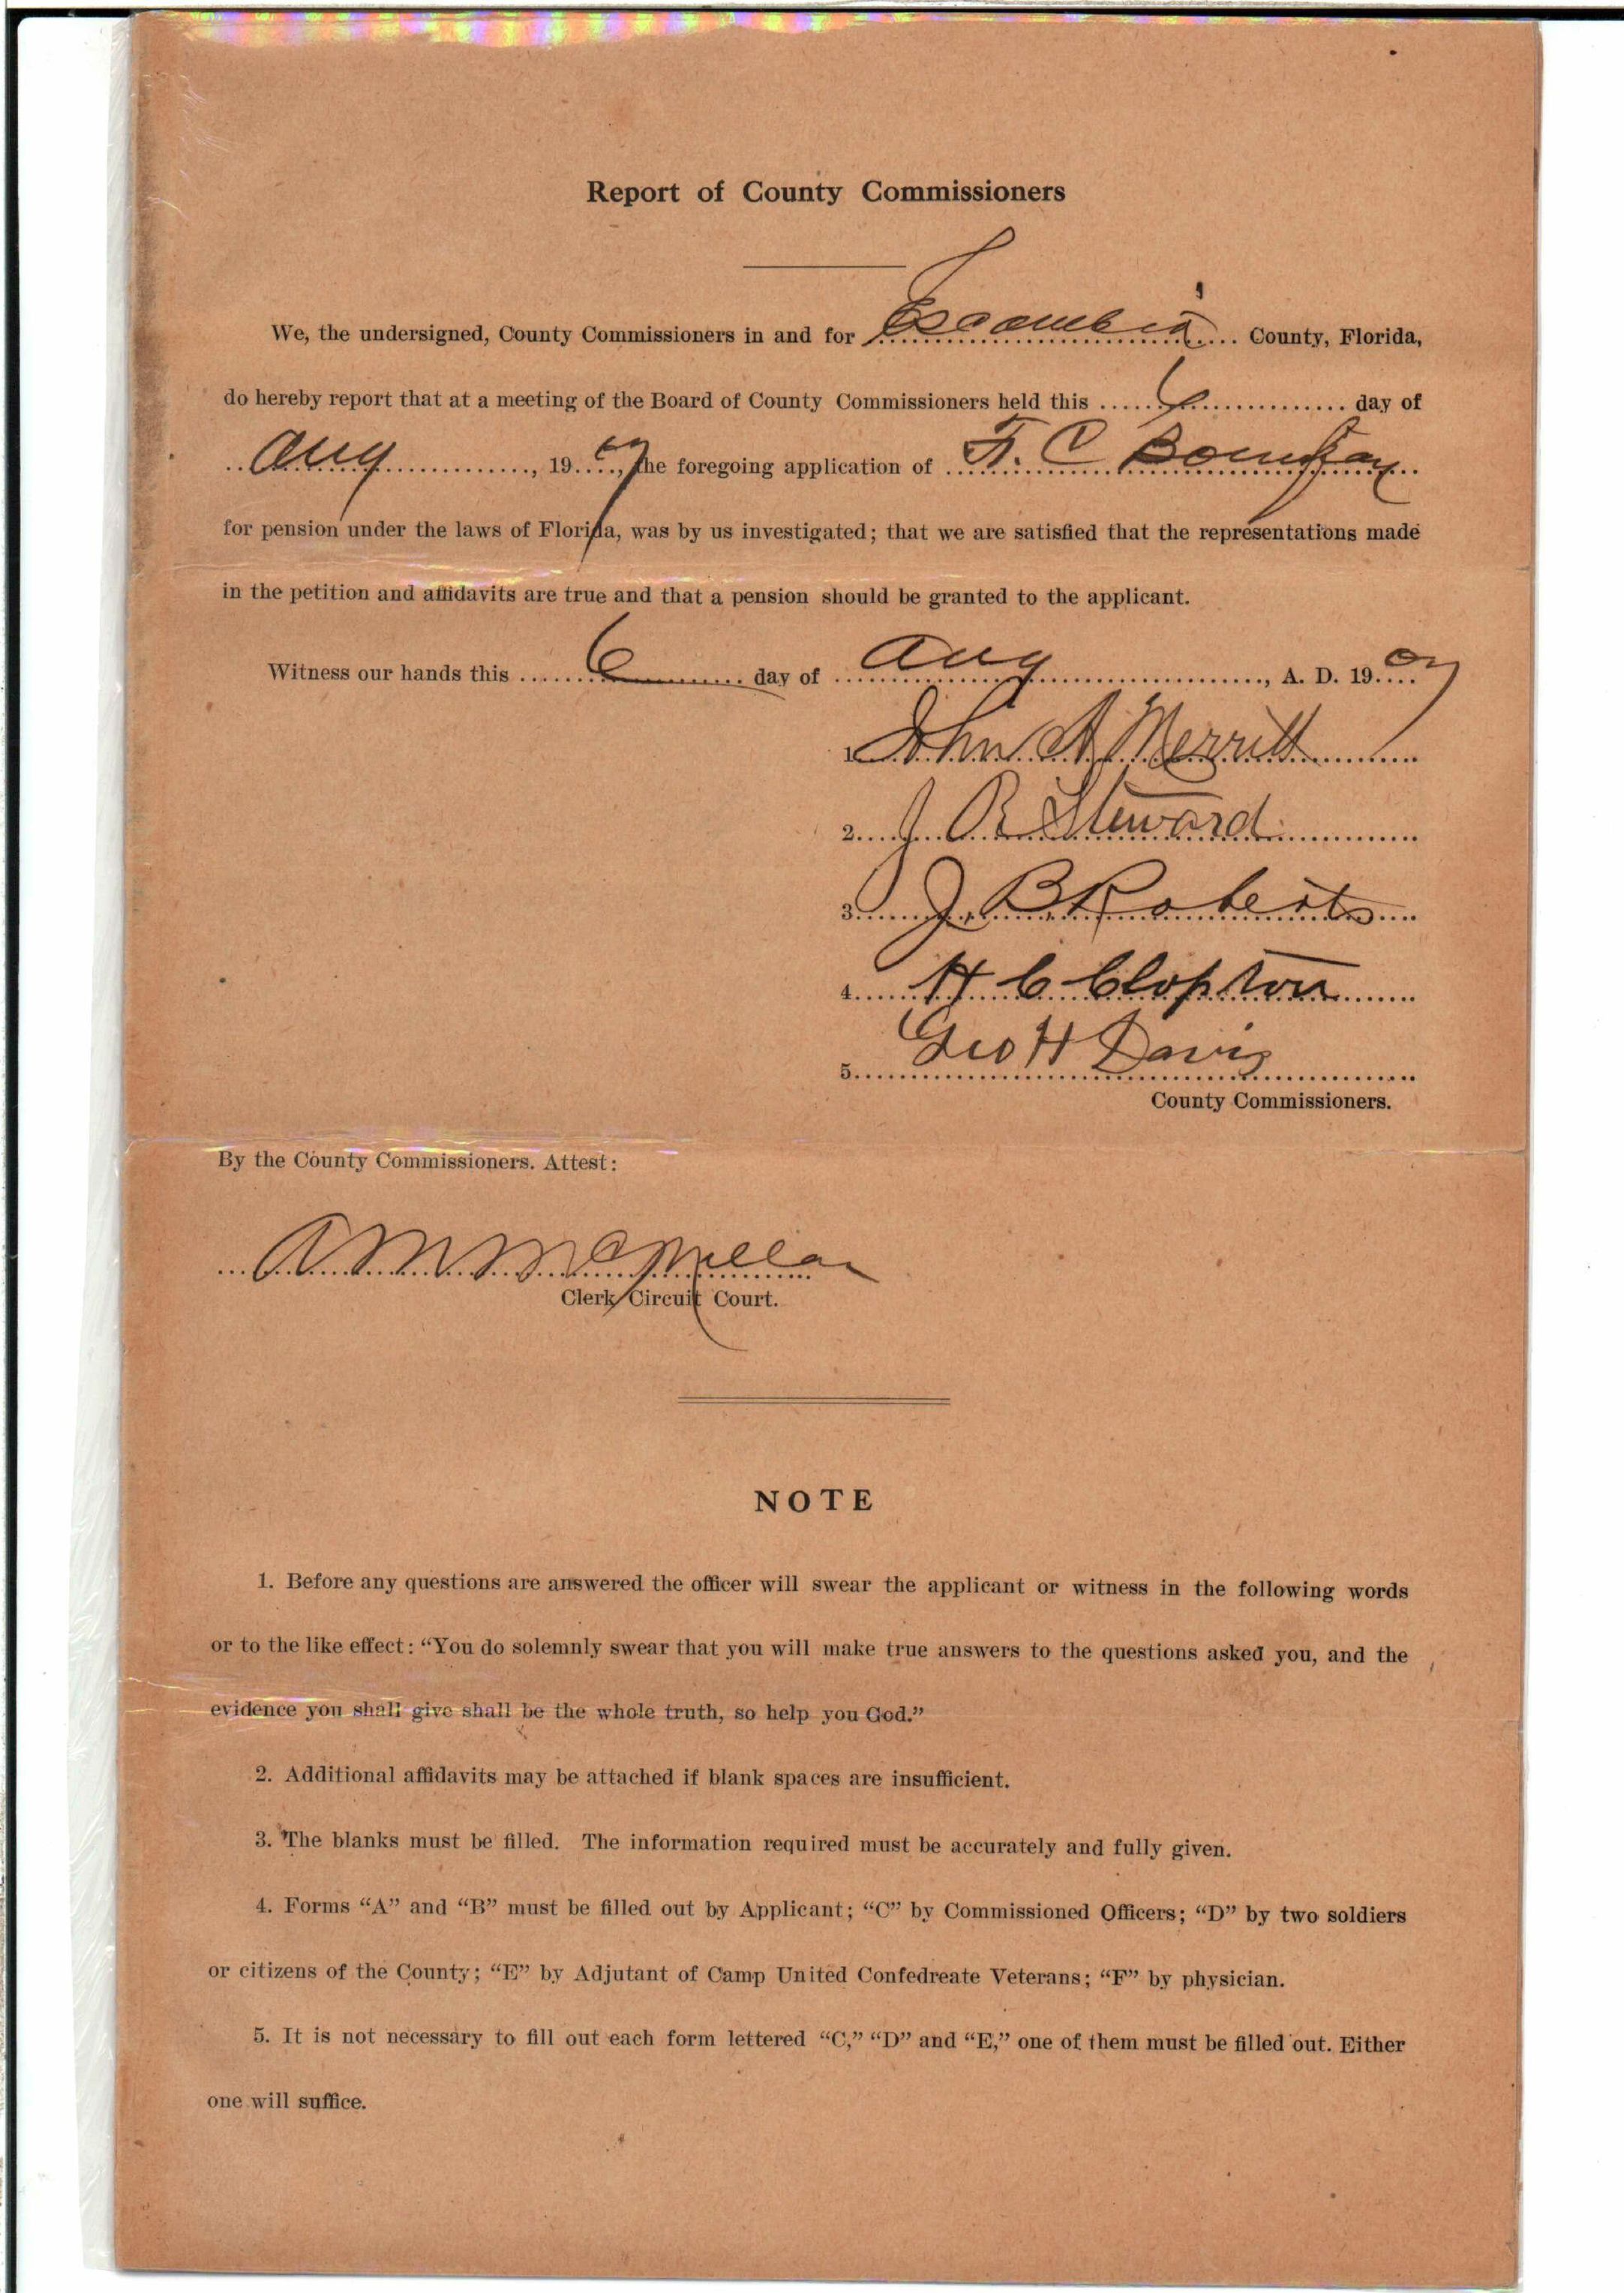 Report of County Commissioners
We, the undersigned, County Commissioners in and for Escambia County, Florida,
do hereby report that at a meeting of the Board of County Commissioners held this 6 day of
Aug, 1907, the foregoing application of F. C.
for pension under the laws of Florida, was by us investigated; that we are satisfied that the representations made
in the petition and affidavits are true and that a pension should be granted to the applicant.
Witness our hands this 6 day of Aug, A. D. 1907
1. John A Merritt
2. J R Steward
3. J B Roberts
4. H C Clopton
Geo H Davis
5.
County Commissioners.
By the County Commissioners. Attest:
A M McMillan
Clerk Circuit Court.
NOTE
1. Before any questions are answered the officer will swear the applicant or witness in the following words
or to the like effect: “You do solemnly swear that you will make true answers to the questions asked you, and the
evidence you shall give shall be the whole truth, so help you God.”
2. Additional affidavits may be attached if blank spaces are insufficient.
3. The blanks must be filled. The information required must be accurately and fully given.
4. Forms “A” and “B” must be filled out by Applicant; “C” by Commissioned Officers; “D” by two soldiers
or citizens of the County; “E” by Adjutant of Camp United Confedreate Veterans; “F” by physician.
5. It is not necessary to fill out each form lettered “C,” “D” and “E,” one of them must be filled out. Either
one will suffice.